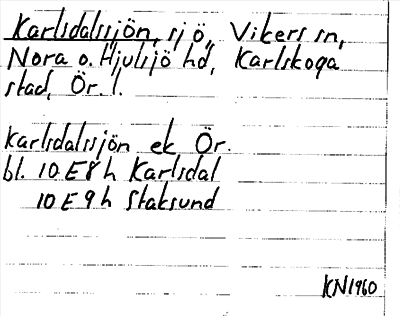 Karlsdalssjön, sjö, Vikers sn,
Nora o. Hjulsjö hd, Karlskoga
stad, Ör. l.
Karlsdalssjön ek Ör.
bl. 10 E 8 h Karlsdal
10 E 9 h Staksund
KN 1960